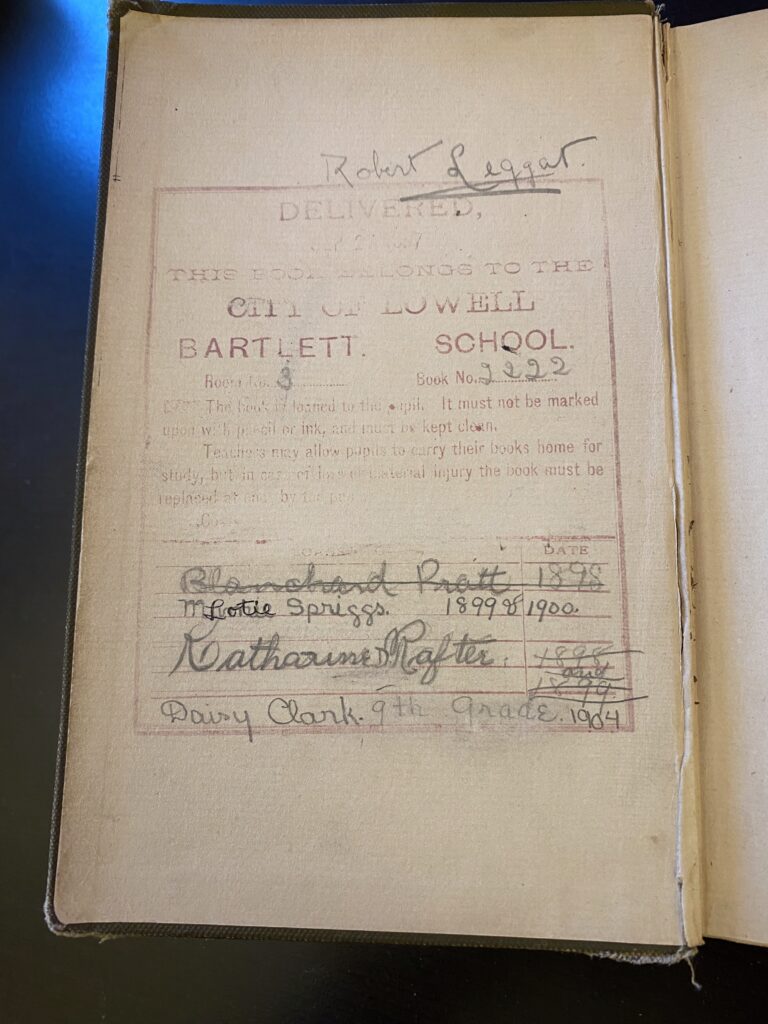 Robert Leggat.
DELIVERED,
THIS BOOK BELONGS TO THE
CITY OF LOWELL
BARTLETT. SCHOOL.
Room No. 3 Book No. 2222
The book is loaned to the pupil. It must not be marked
upon with pencil or ink, and must be kept clean.
Teachers may allow pupils to carry their books home for
study, but in case of loss or material injury the book must be
replaced at once by the
DATE
Blanchard Pratt 1898
Lottie Spriggs. 1899 & 1900.
Katharine D. Rafter. 1898
and
1899
Daisy Clark. 9th Grade. 1904